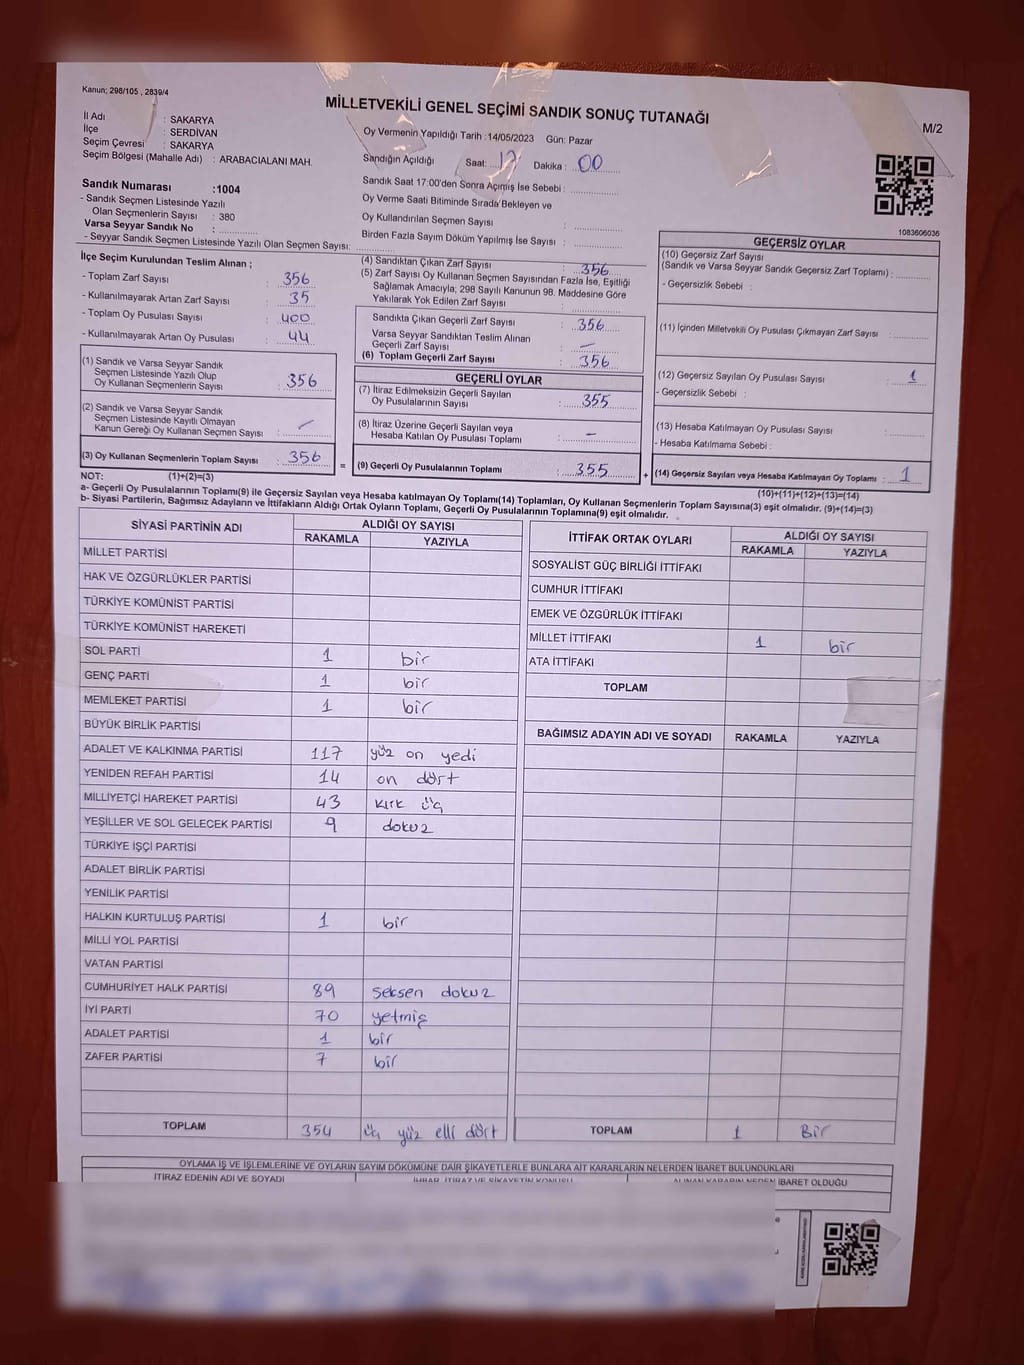 Kanun; 298/105 , 2839/4
MİLLETVEKİLİ GENEL SEÇİMİ SANDIK SONUÇ TUTANAĞI
M/2
İl Adı : SAKARYA
İlçe : SERDİVAN
Seçim Çevresi : SAKARYA
Seçim Bölgesi (Mahalle Adı) : ARABACIALANI MAH.
Oy Vermenin Yapıldığı Tarih :14/05/2023 Gün: Pazar
Sandığın Açıldığı Saat: 17 Dakika : 00
Sandık Saat 17:00'den Sonra Açılmış İse Sebebi :
Oy Verme Saati Bitiminde Sırada Bekleyen ve
Oy Kullandırılan Seçmen Sayısı :
Birden Fazla Sayım Döküm Yapılmış İse Sayısı :
Sandık Numarası :1004
- Sandık Seçmen Listesinde Yazılı
Olan Seçmenlerin Sayısı : 380
Varsa Seyyar Sandık No :
- Seyyar Sandık Seçmen Listesinde Yazılı Olan Seçmen Sayısı:
1083606036
İlçe Seçim Kurulundan Teslim Alınan ;
- Toplam Zarf Sayısı : 356
- Kullanılmayarak Artan Zarf Sayısı : 35
- Toplam Oy Pusulası Sayısı : 400
- Kullanılmayarak Artan Oy Pusulası : 44
(1) Sandık ve Varsa Seyyar Sandık
Seçmen Listesinde Yazılı Olup
Oy Kullanan Seçmenlerin Sayısı : 356
(2) Sandık ve Varsa Seyyar Sandık
Seçmen Listesinde Kayıtlı Olmayan
Kanun Gereği Oy Kullanan Seçmen Sayısı : –
(3) Oy Kullanan Seçmenlerin Toplam Sayısı : 356
(4) Sandıktan Çıkan Zarf Sayısı : 356
(5) Zarf Sayısı Oy Kullanan Seçmen Sayısından Fazla İse, Eşitliği
Sağlamak Amacıyla; 298 Sayılı Kanunun 98. Maddesine Göre
Yakılarak Yok Edilen Zarf Sayısı :
Sandıkta Çıkan Geçerli Zarf Sayısı : 356
Varsa Seyyar Sandıktan Teslim Alınan
Geçerli Zarf Sayısı : –
(6) Toplam Geçerli Zarf Sayısı : 356
GEÇERLİ OYLAR
(7) İtiraz Edilmeksizin Geçerli Sayılan
Oy Pusulalarının Sayısı : 355
(8) İtiraz Üzerine Geçerli Sayılan veya
Hesaba Katılan Oy Pusulası Toplamı : –
= (9) Geçerli Oy Pusulalarının Toplamı : 355 +
GEÇERSİZ OYLAR
(10) Geçersiz Zarf Sayısı
(Sandık ve Varsa Seyyar Sandık Geçersiz Zarf Toplamı) :
- Geçersizlik Sebebi :
(11) İçinden Milletvekili Oy Pusulası Çıkmayan Zarf Sayısı :
(12) Geçersiz Sayılan Oy Pusulası Sayısı : 1
- Geçersizlik Sebebi :
(13) Hesaba Katılmayan Oy Pusulası Sayısı :
- Hesaba Katılmama Sebebi :
(14) Geçersiz Sayılan veya Hesaba Katılmayan Oy Toplamı : 1
NOT: (1)+(2)=(3)
(10)+(11)+(12)+(13)=(14)
a- Geçerli Oy Pusulalarının Toplamı(9) ile Geçersiz Sayılan veya Hesaba katılmayan Oy Toplamı(14) Toplamları, Oy Kullanan Seçmenlerin Toplam Sayısına(3) eşit olmalıdır. (9)+(14)=(3)
b- Siyasi Partilerin, Bağımsız Adayların ve İttifakların Aldığı Ortak Oyların Toplamı, Geçerli Oy Pusulalarının Toplamına(9) eşit olmalıdır.
SİYASİ PARTİNİN ADI ALDIĞI OY SAYISI
RAKAMLA YAZIYLA
MİLLET PARTİSİ
HAK VE ÖZGÜRLÜKLER PARTİSİ
TÜRKİYE KOMÜNİST PARTİSİ
TÜRKİYE KOMÜNİST HAREKETİ
SOL PARTİ 1 bir
GENÇ PARTİ 1 bir
MEMLEKET PARTİSİ 1 bir
BÜYÜK BİRLİK PARTİSİ
ADALET VE KALKINMA PARTİSİ 117 yüz on yedi
YENİDEN REFAH PARTİSİ 14 on dört
MİLLİYETÇİ HAREKET PARTİSİ 43 kırk üç
YEŞİLLER VE SOL GELECEK PARTİSİ 9 dokuz
TÜRKİYE İŞÇİ PARTİSİ
ADALET BİRLİK PARTİSİ
YENİLİK PARTİSİ
HALKIN KURTULUŞ PARTİSİ 1 bir
MİLLİ YOL PARTİSİ
VATAN PARTİSİ
CUMHURİYET HALK PARTİSİ 89 seksen dokuz
İYİ PARTİ 70 yetmiş
ADALET PARTİSİ 1 bir
ZAFER PARTİSİ 7 bir
TOPLAM 354 üç yüz elli dört
İTTİFAK ORTAK OYLARI ALDIĞI OY SAYISI
RAKAMLA YAZIYLA
SOSYALİST GÜÇ BİRLİĞİ İTTİFAKI
CUMHUR İTTİFAKI
EMEK VE ÖZGÜRLÜK İTTİFAKI
MİLLET İTTİFAKI 1 bir
ATA İTTİFAKI
TOPLAM
BAĞIMSIZ ADAYIN ADI VE SOYADI RAKAMLA YAZIYLA
TOPLAM 1 Bir
OYLAMA İŞ VE İŞLEMLERİNE VE OYLARIN SAYIM DÖKÜMÜNE DAİR ŞİKAYETLERLE BUNLARA AİT KARARLARIN NELERDEN İBARET BULUNDUKLARI
İTİRAZ EDENİN ADI VE SOYADI
İBARET OLDUĞU